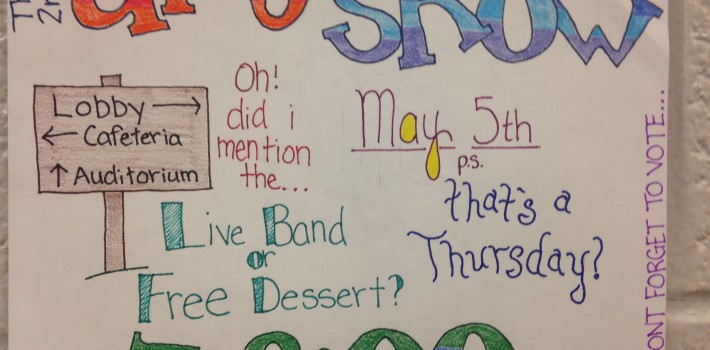 SHOW
Lobby →
← Cafeteria
↑ Auditorium
Oh!
did i
mention
the...
May 5th
p.s.
that's a
Thursday?
Live Band
or
Free Dessert?
FORGET TO VOTE...